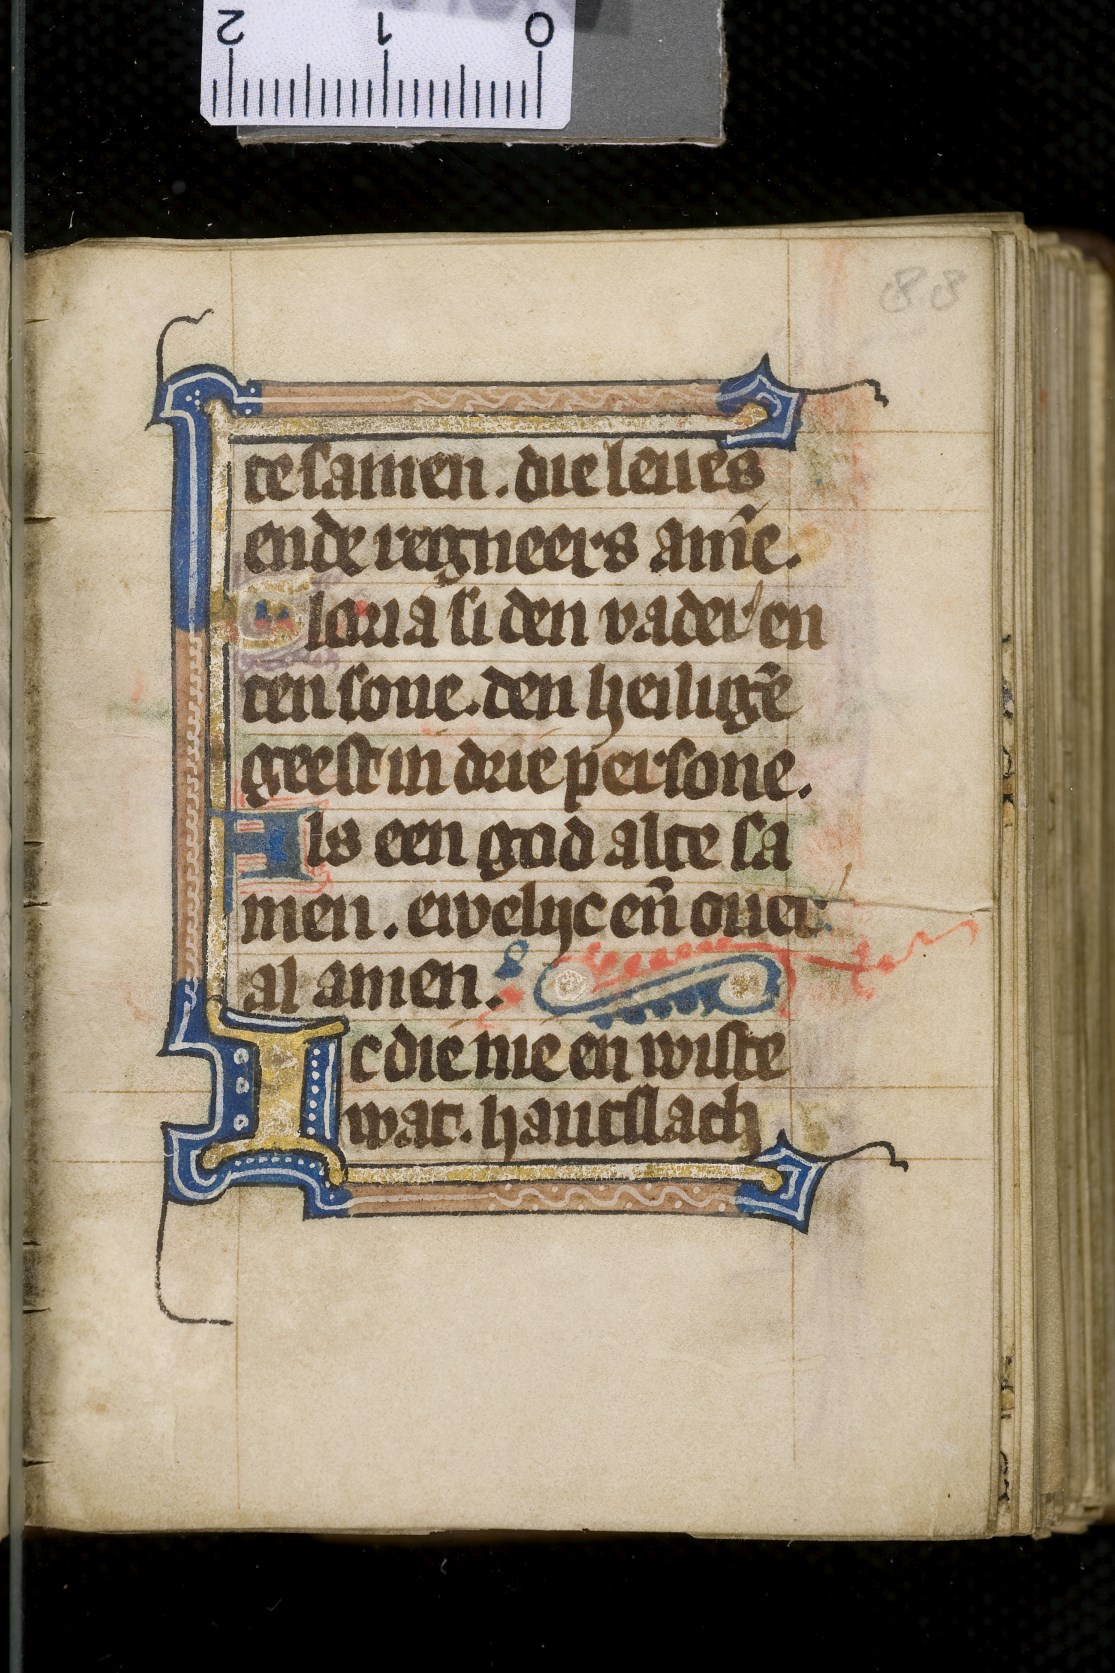 2 1 0
88
te samen. die leues
ende regneers am̄e.
Gloria si den vader en
ten sone. den heilighē
geest in drie persone.
Als een god alte sa
men. ewelijc eñ ouer
al amen.
Ic die nie en wiste
wat. hantslach